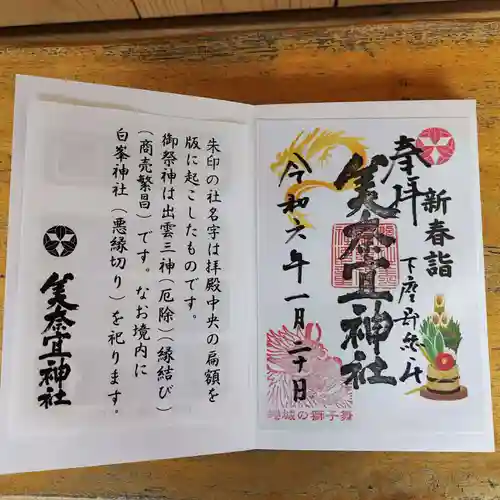 奉拝
新春詣
美奈宜神社
令和六年一月二十日
縄城の獅子舞
朱印の社名字は拝殿中央の扁額を
版に起こしたものです。
御祭神は出雲三神(厄除)(縁結び)
(商売繁昌)です。なお境内に
白峯神社(悪縁切り)を祀ります。
美奈宜神社